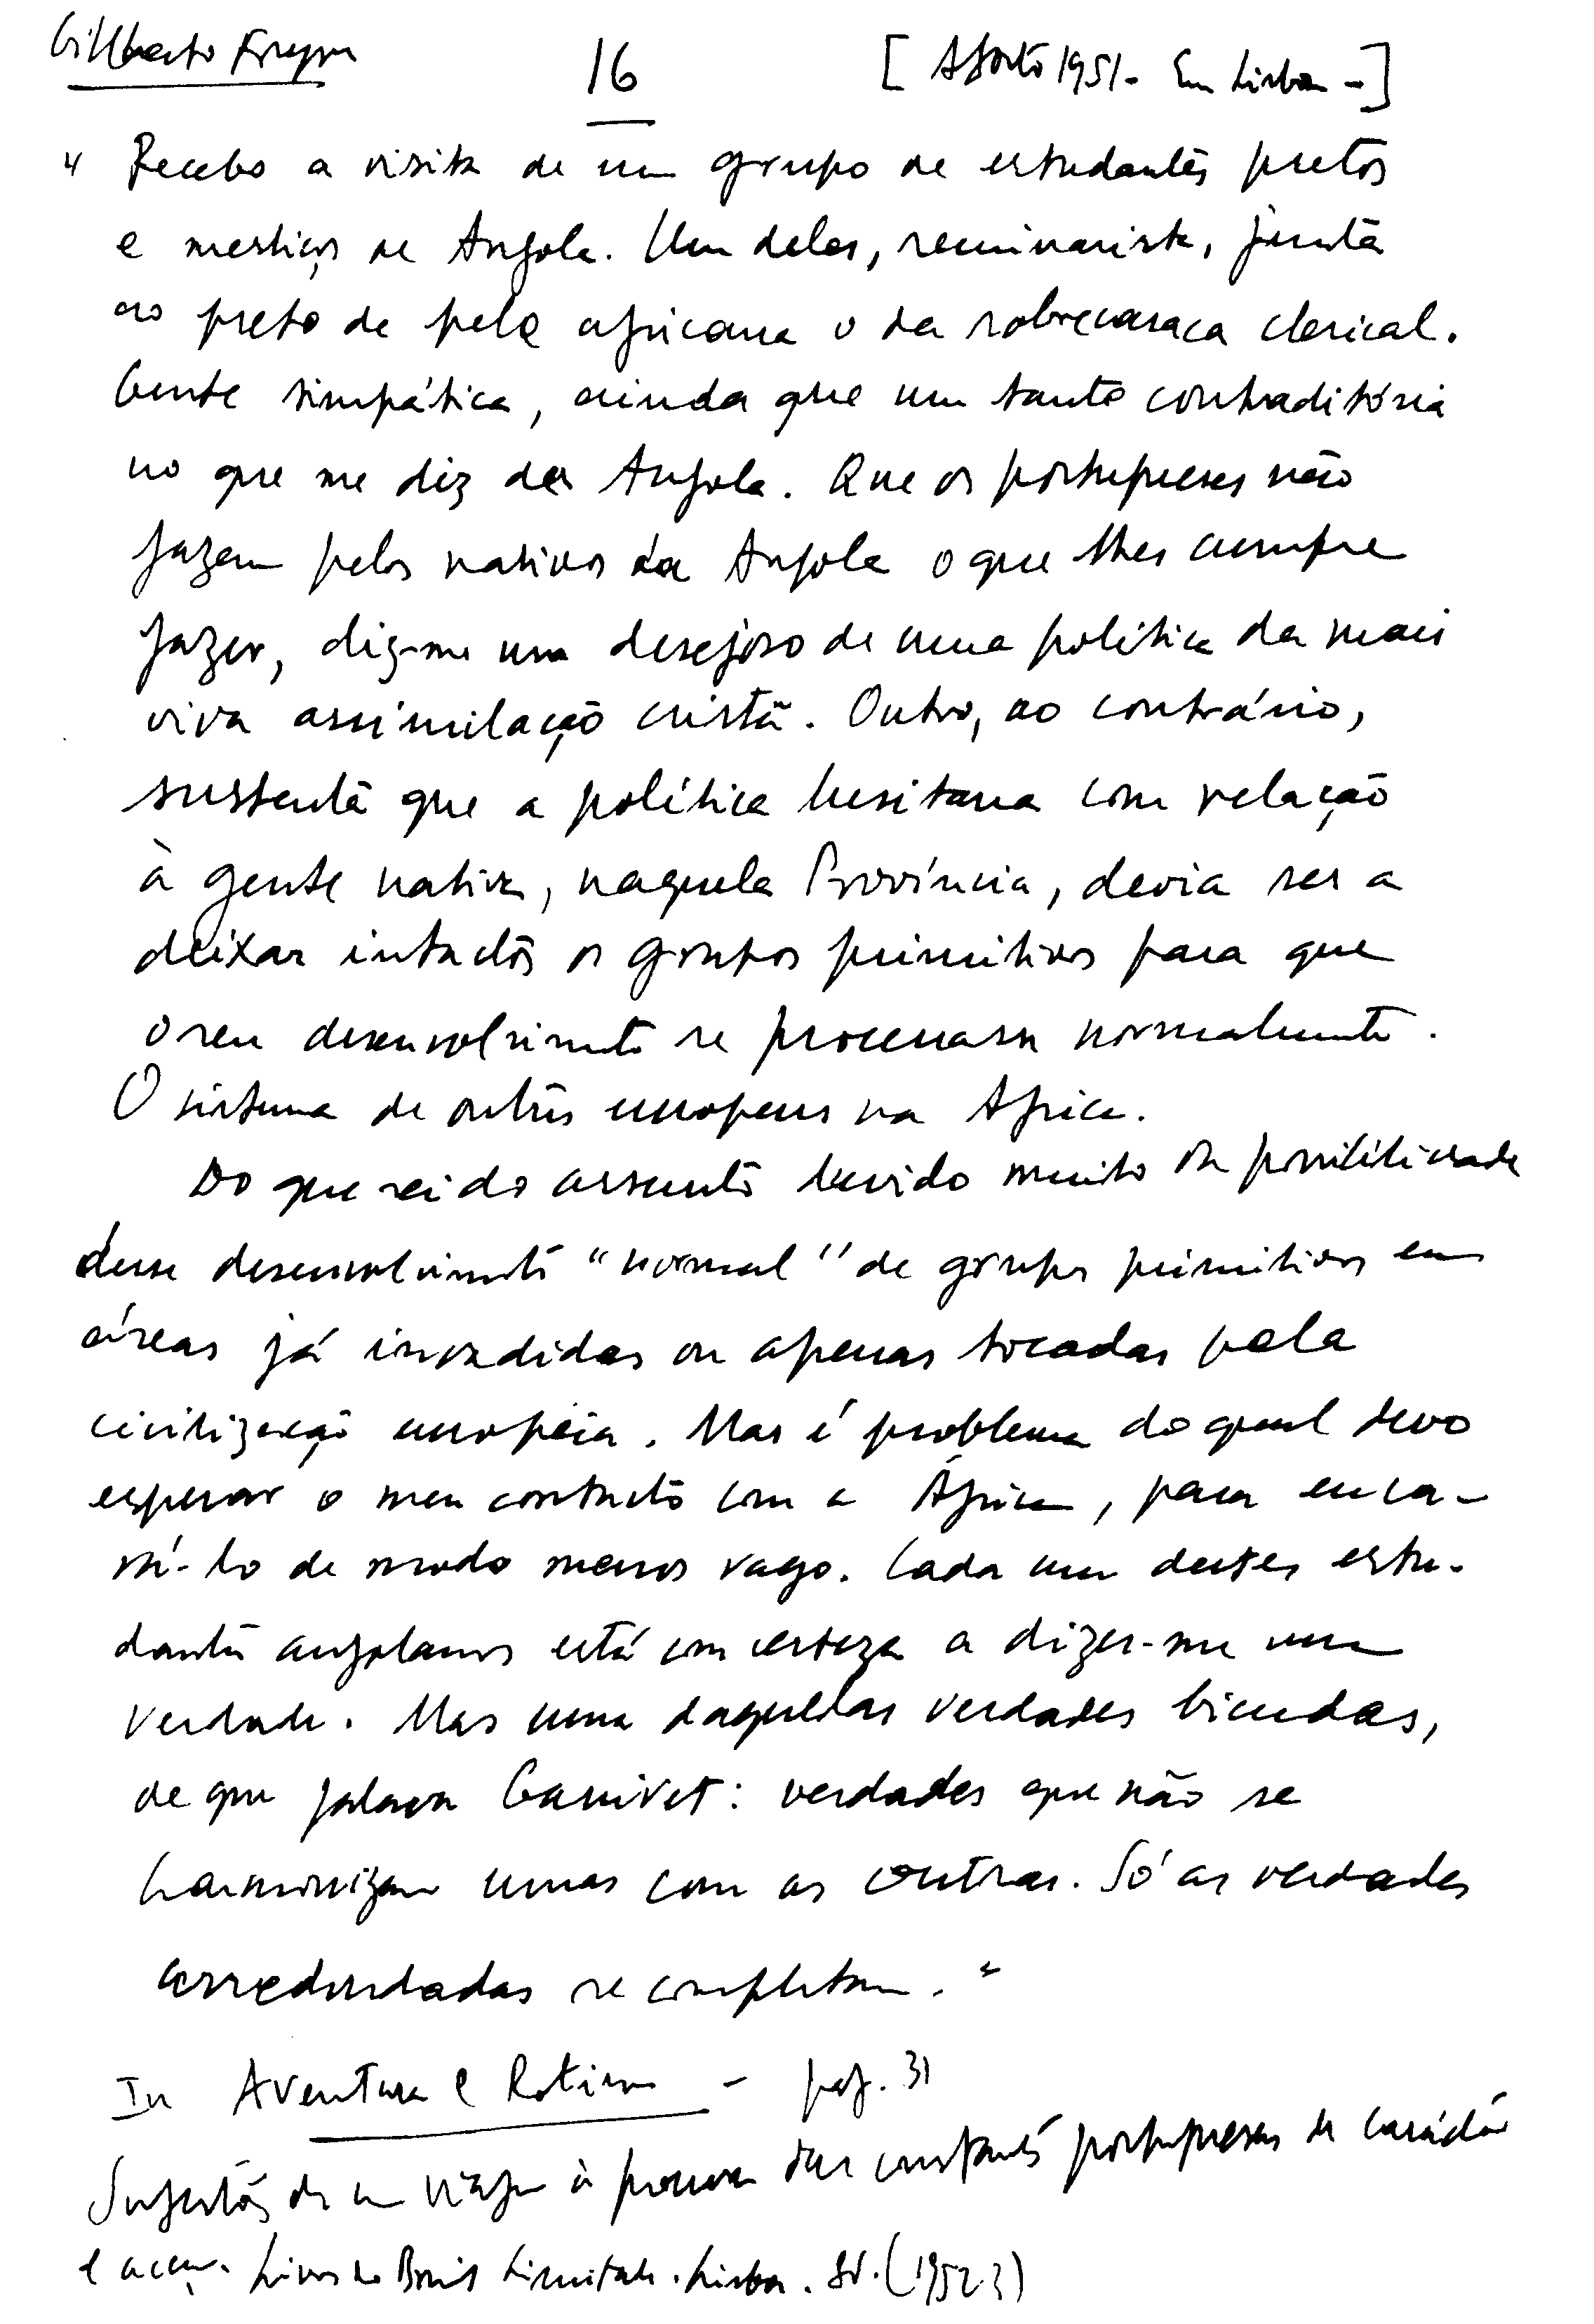 Gilberto Freyre
16
[Agosto 1951 - Em Lisboa -]
" Recebo a visita de um grupo de estudantes pretos
e mestiços de Angola. Um deles, seminarista, junta
ao preto de pele africana o da sobrecasaca clerical.
Gente simpática, ainda que um tanto contraditória
no que me diz da Angola. Que os portugueses não
fazem pelos nativos da Angola o que lhes cumpre
fazer, diz-me um desejoso de uma política da mais
viva assimilação cristã. Outro, ao contrário,
sustenta que a política lusitana com relação
à gente nativa, naquela Província, devia ser a
deixar intactos os grupos primitivos para que
o seu desenvolvimento se processasse normalmente.
O sistema de outros europeus na Africa.
Do que sei do assunto duvido muito da possibilidade
desse desenvolvimento "normal" de grupos primitivos em
áreas já invadidas ou apenas tocadas pela
civilização européia. Mas é problema do qual devo
esperar o meu contacto com a África, para enca-
rá-lo de modo menos vago. Cada um destes estu-
dantes angolanos está com certeza a dizer-me uma
verdade. Mas uma daquelas verdades bicudas,
de que falava Ganivet: verdades que não se
harmonizam umas com as outras. Só as verdades
arredondadas se completam."
In Aventura e Rotina - pag. 31
Sugestões de uma viagem à procura das constantes portuguesas de carácter
e acção. Livros do Brasil Limitada. Lisboa. S/d. (1952?)